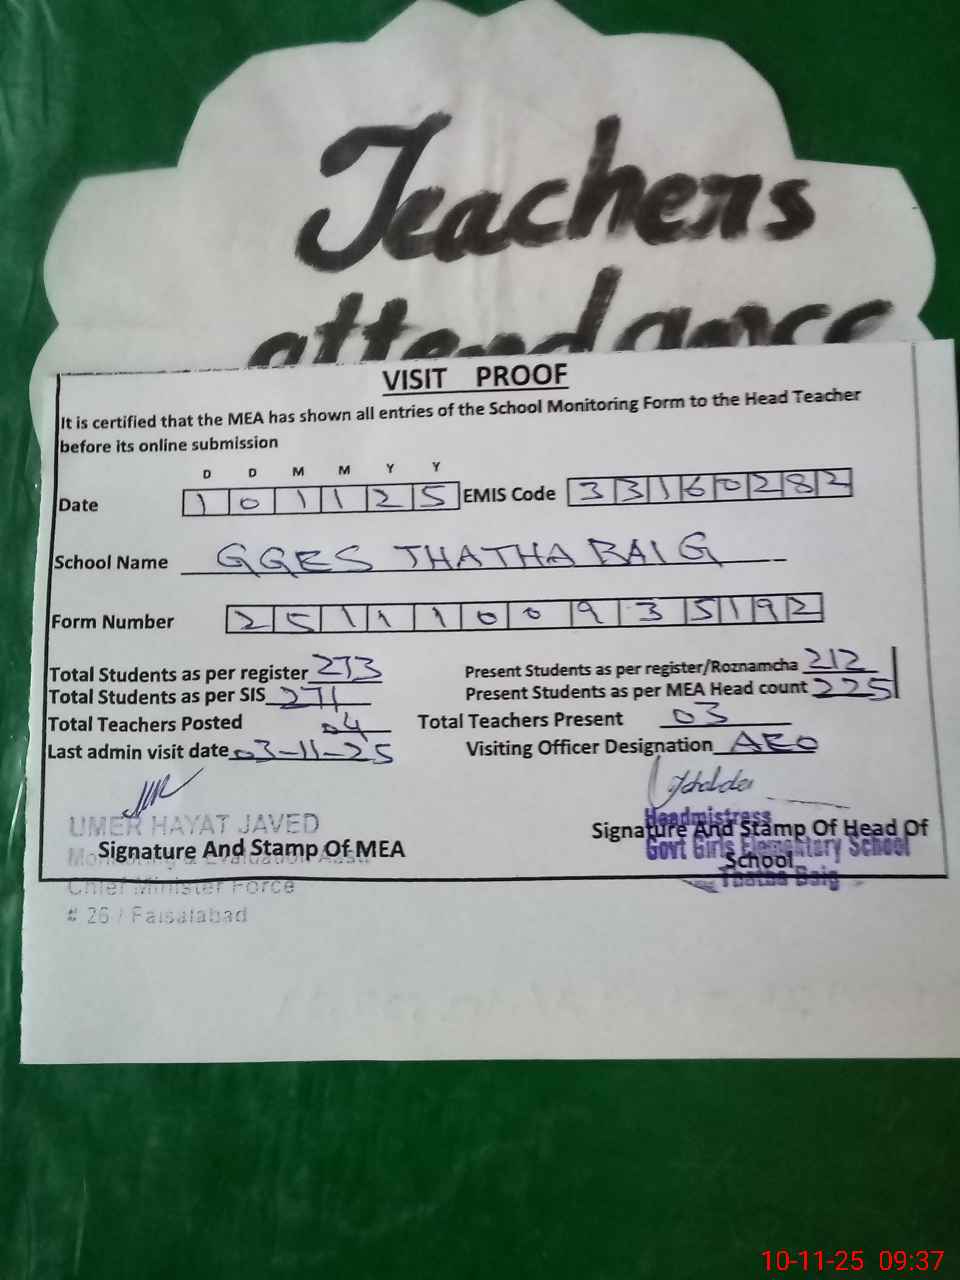 Teachers
attendance
VISIT PROOF
It is certified that the MEA has shown all entries of the School Monitoring Form to the Head Teacher
before its online submission
D D M M Y Y
Date 1 0 1 1 2 5 EMIS Code 3 3 1 6 0 2 8 2
School Name GGES THATHA BAIG
Form Number 2 5 1 1 1 0 0 9 3 5 1 9 2
Total Students as per register 273 Present Students as per register/Roznamcha 212
Total Students as per SIS 271 Present Students as per MEA Head count 225
Total Teachers Posted 04 Total Teachers Present 03
Last admin visit date 03-11-25 Visiting Officer Designation AEO
UMER HAYAT JAVED
Monitoring & Evaluation Asstt
Signature And Stamp Of MEA
Chief Minister Force
# 26 / Faisalabad
Headmistress
Signature And Stamp Of Head Of
Govt Girls Elementary School
School
Thatha Baig
10-11-25 09:37